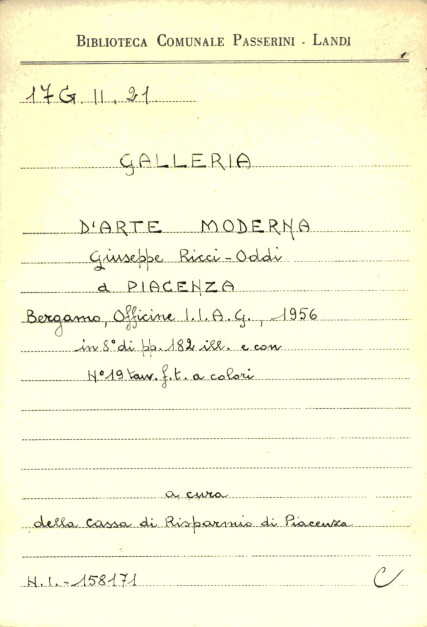 BIBLIOTECA COMUNALE PASSERINI - LANDI
17G. II. 21
GALLERIA
D'ARTE MODERNA
Giuseppe Ricci-Oddi
a PIACENZA
Bergamo, Officine I.I.A.G., 1956
in 8° di pp. 182 ill. e con
N° 19 tav. f.t. a colori
a cura
della Cassa di Risparmio di Piacenza
N.I.-158171
C